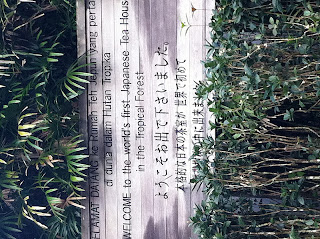 SELAMAT DATANG ke Rumah Teh Jepun yang pertama
di dunia dalam Hutan Tropika
WELCOME to the world's first Japanese Tea House
in the Tropical Forest
ようこそお出で下さいました。
本格的な日本の茶室が 世界で初めて